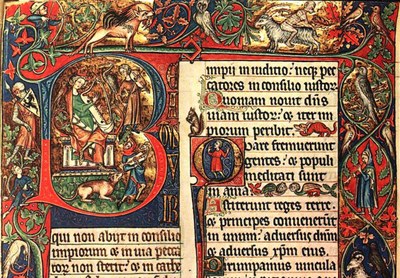 B
qui non abijt in consilio
impiorum et in uia pecca
tor non stetit: et in cathe
impij in iuditio: neqȝ pec
catores in consilio iustoꝝ
Quoniam nouit dñs
uiam iustoꝝ: et iter im
piorum peribit.
Quare fremuerunt
gentes: et populi
meditati sunt
inania
Astiterunt reges terre:
et principes conuenerūt
in unum: aduersus dñm
et aduersus xp̄m eius.
Dirumpamus uincula